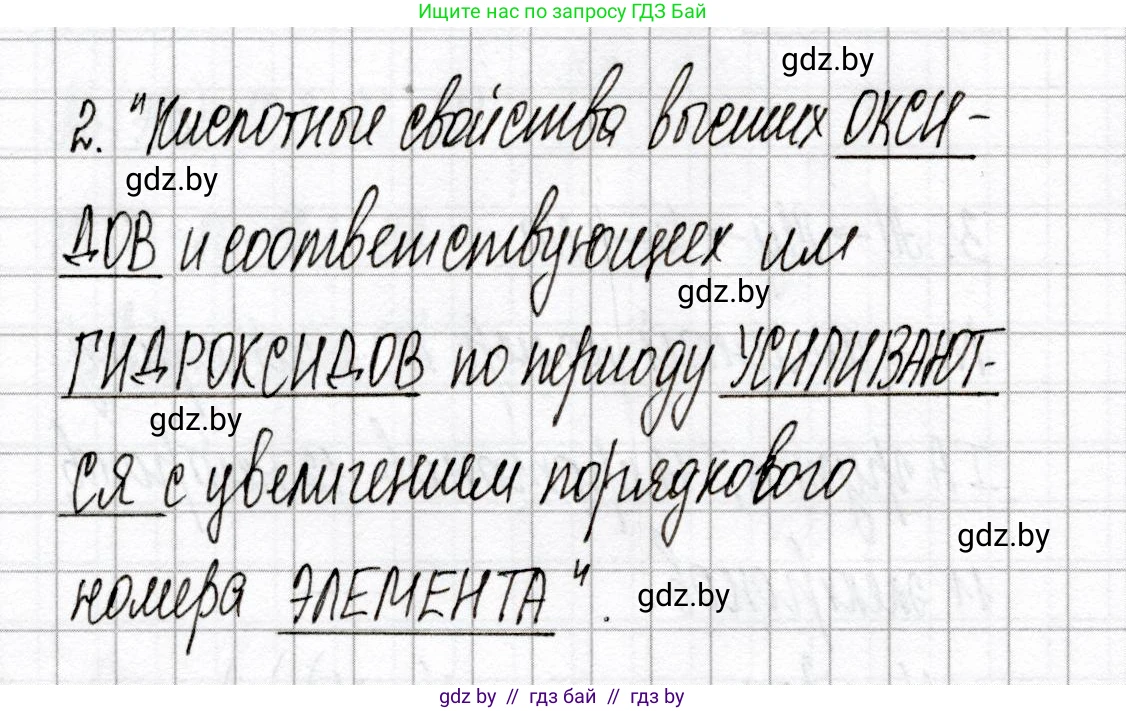 Ищите нас по запросу ГДЗ Бай
gdz.by
2. "Кислотные свойства высших ОКСИ-
gdz.by
ДОВ и соответствующих им
gdz.by
ГИДРОКСИДОВ по периоду УСИЛИВАЮТ-
gdz.by
СЯ с увеличением порядкового
gdz.by
номера ЭЛЕМЕНТА".
gdz.by
gdz.by // гдз бай // гдз by